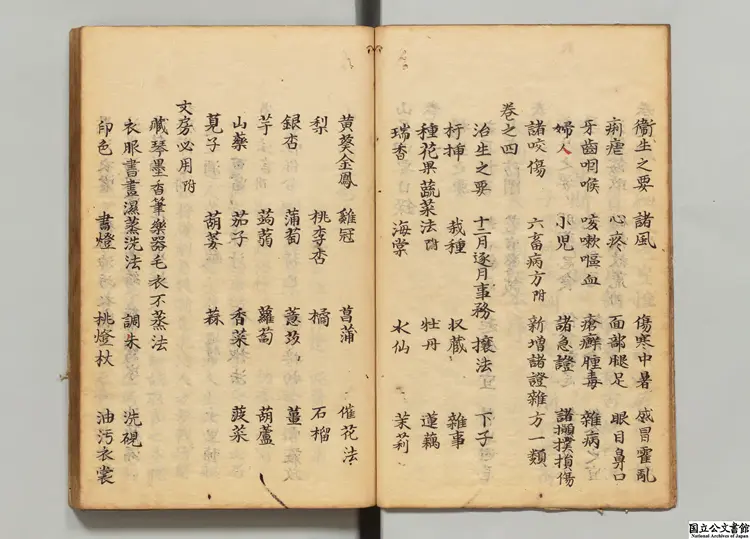 衛生之要 諸風 傷寒中暑 感冒霍亂
痢瘧 心疼 面部腿足 眼目鼻口
牙齒咽喉 咳嗽嘔血 瘡癬腫毒 雜病
婦人 小児 諸急證 諸擷撲損傷
諸咬傷 六畜病方附 新增諸證雜方一類
卷之四
治生之要 十二月逐月事務 攘法 下子
扦揷 栽種 収藏 雜事
種花果蔬菜法附 牡丹 蓮藕
瑞香 海棠 水仙 茉莉
黄葵金鳳 雞冠 菖蒲 催花法
梨 桃李杏 橘 石榴
銀杏 蒲萄 薏苡 薑
芋 蒟蒻 蘿蔔 葫蘆
山藥 茄子 香菜 菠菜
莧子 葫荽 菻
文房必用附
藏琴墨香筆樂器毛衣不蒸法
衣服書畫濕蒸洗法 調朱 洗硯
印色 書燈 桃燈杖 油汚衣裳
国立公文書館
National Archives of Japan